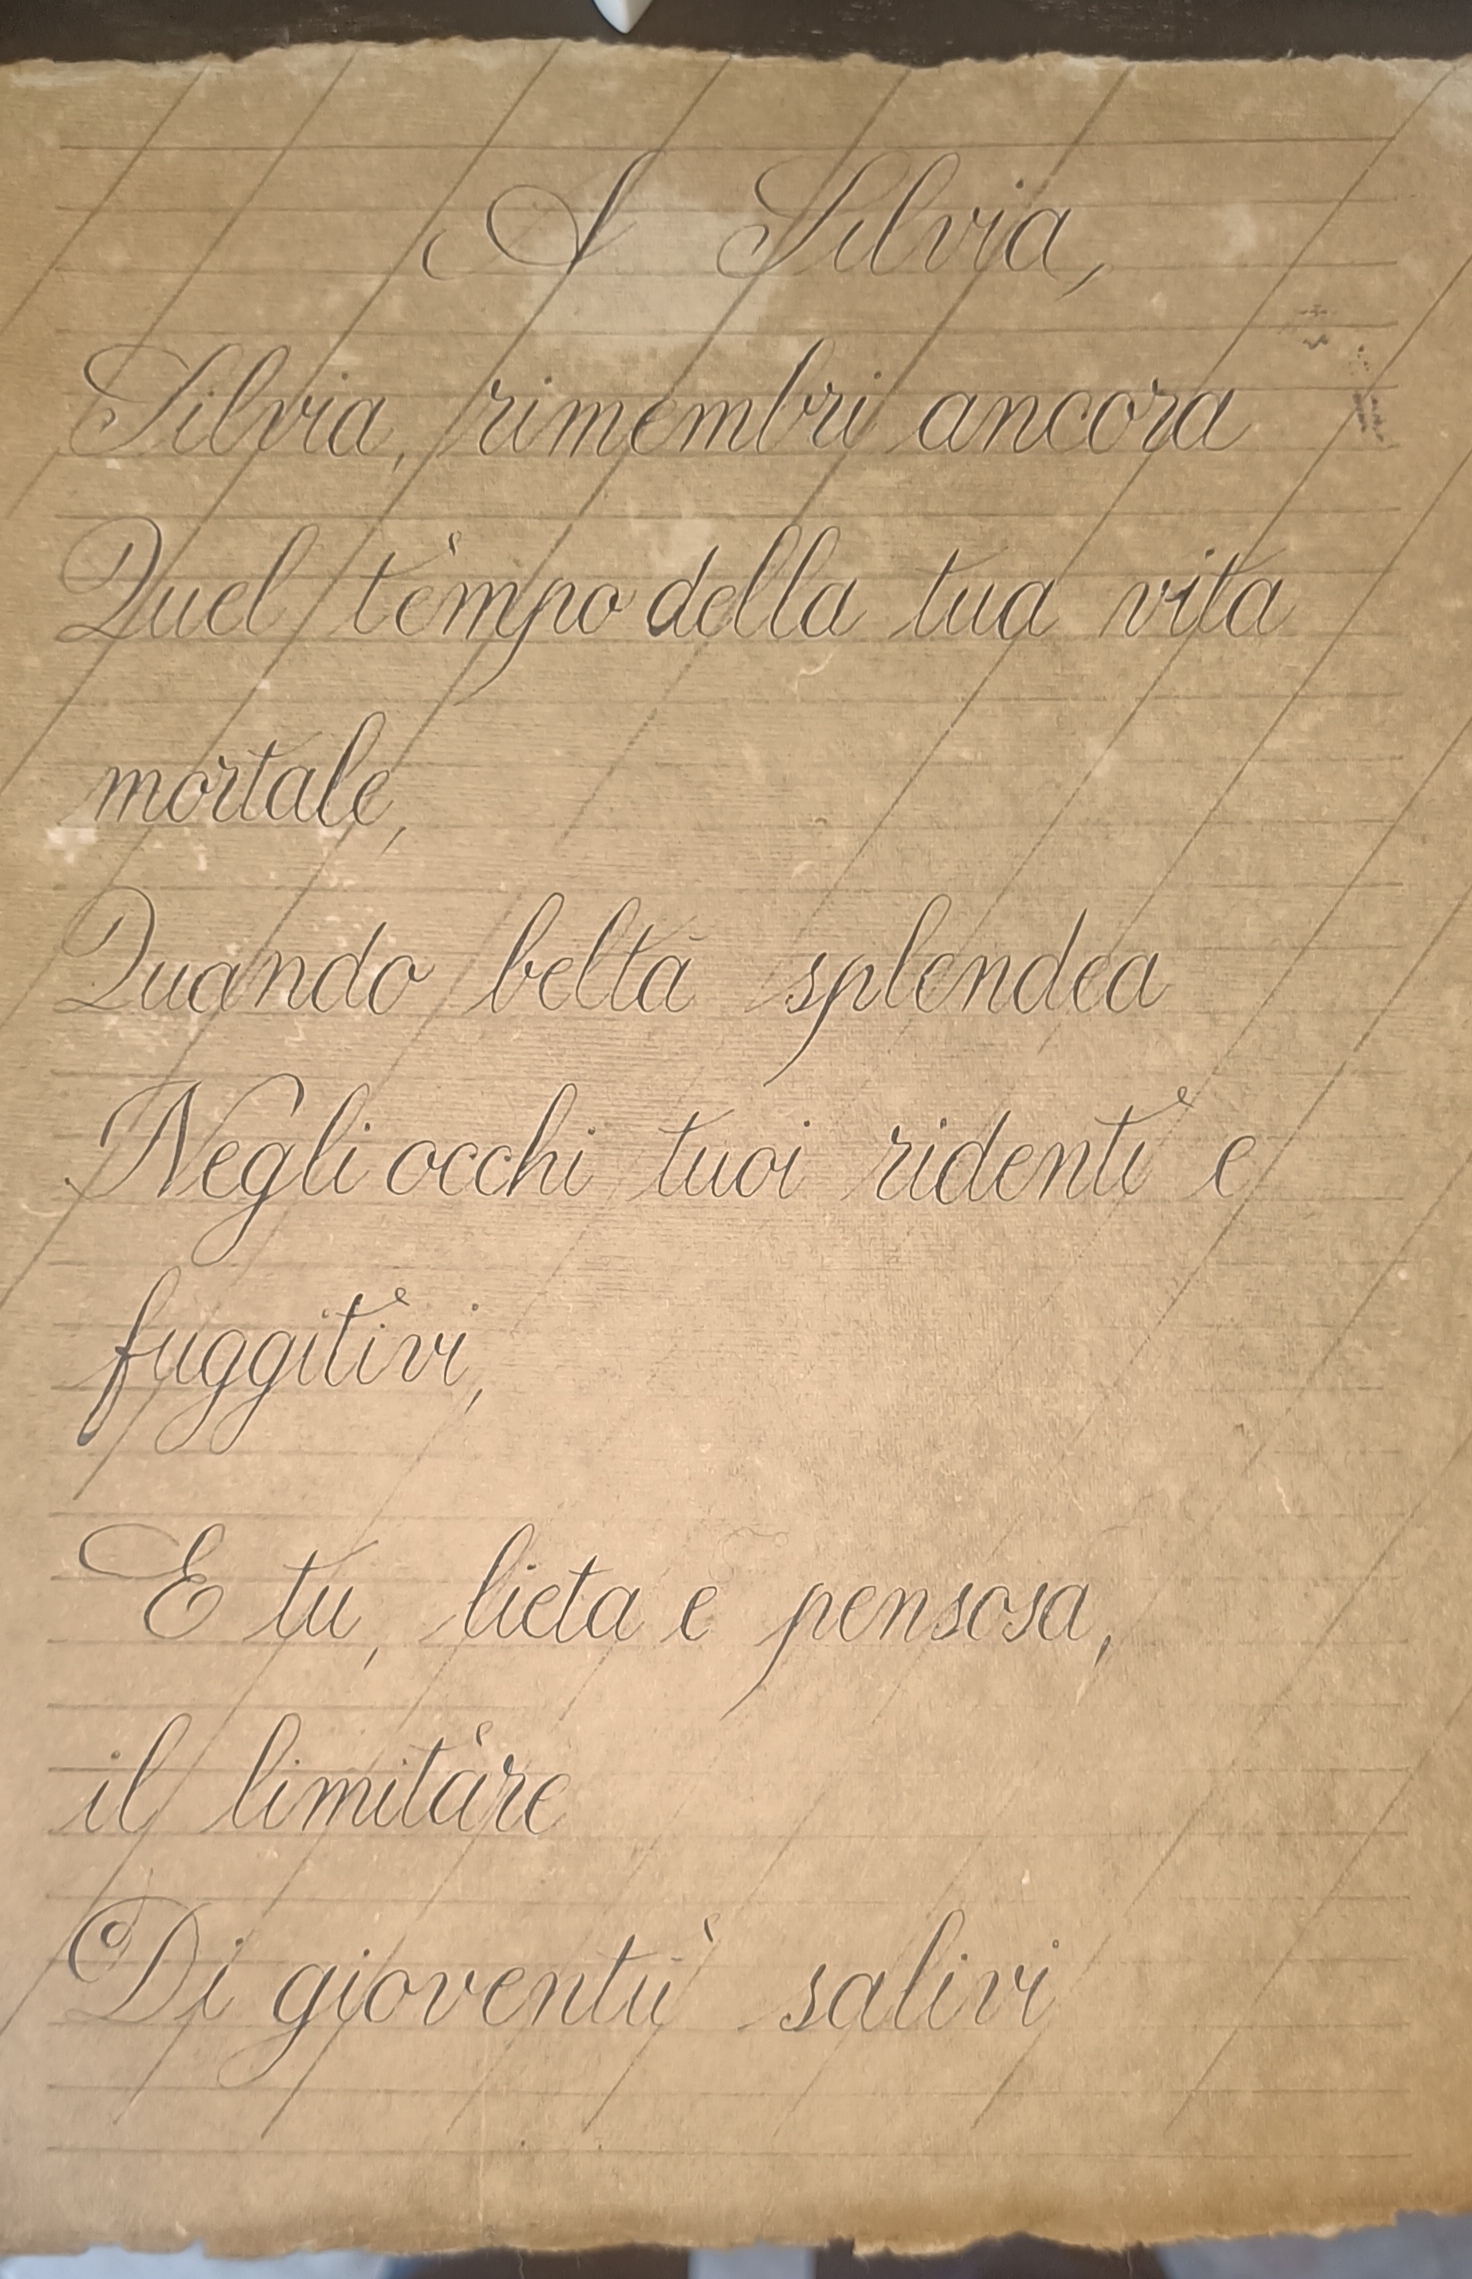 A Silvia,
Silvia, rimembri ancora
Quel tempo della tua vita
mortale,
Quando beltà splendea
Negli occhi tuoi ridenti e
fuggitivi,
E tu, lieta e pensosa,
il limitare
Di gioventù salivi